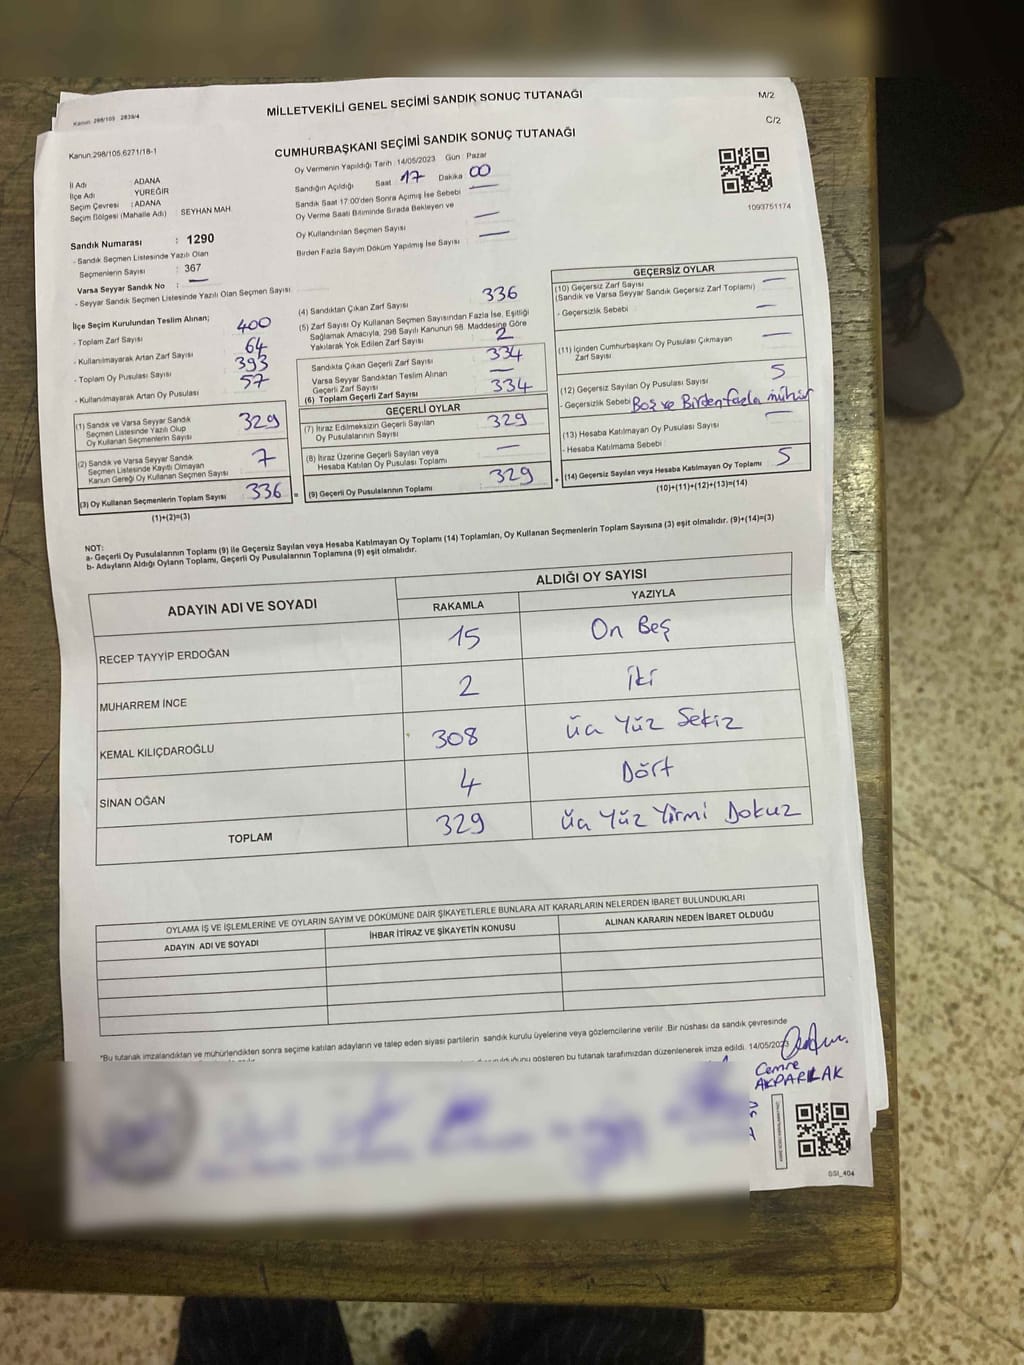 MİLLETVEKİLİ GENEL SEÇİMİ SANDIK SONUÇ TUTANAĞI
M/2
Kanun: 298/105 2839/4
CUMHURBAŞKANI SEÇİMİ SANDIK SONUÇ TUTANAĞI
C/2
Kanun:298/105,6271/18-1
Oy Vermenin Yapıldığı Tarih :14/05/2023 Gün : Pazar
Sandığın Açıldığı Saat 17 Dakika 00
Sandık Saat 17:00'den Sonra Açımış İse Sebebi
Oy Verme Saati Bitiminde Sırada Bekleyen ve
Oy Kullandırılan Seçmen Sayısı
Birden Fazla Sayım Döküm Yapılmış İse Sayısı
1093751174
İl Adı : ADANA
İlçe Adı : YÜREĞİR
Seçim Çevresi : ADANA
Seçim Bölgesi (Mahalle Adı) : SEYHAN MAH.
Sandık Numarası : 1290
- Sandık Seçmen Listesinde Yazılı Olan
Seçmenlerin Sayısı : 367
Varsa Seyyar Sandık No : —
- Seyyar Sandık Seçmen Listesinde Yazılı Olan Seçmen Sayısı
İlçe Seçim Kurulundan Teslim Alınan;
- Toplam Zarf Sayısı 400
- Kullanılmayarak Artan Zarf Sayısı 64
- Toplam Oy Pusulası Sayısı 393
- Kullanılmayarak Artan Oy Pusulası 57
(1) Sandık ve Varsa Seyyar Sandık
Seçmen Listesinde Yazılı Olup
Oy Kullanan Seçmenlerin Sayısı 329
(2) Sandık ve Varsa Seyyar Sandık
Seçmen Listesinde Kayıtlı Olmayan
Kanun Gereği Oy Kullanan Seçmen Sayısı 7
(3) Oy Kullanan Seçmenlerin Toplam Sayısı 336 =
(1)+(2)=(3)
(4) Sandıktan Çıkan Zarf Sayısı 336
(5) Zarf Sayısı Oy Kullanan Seçmen Sayısından Fazla İse, Eşitliği
Sağlamak Amacıyla, 298 Sayılı Kanunun 98. Maddesine Göre
Yakılarak Yok Edilen Zarf Sayısı 2
Sandıkta Çıkan Geçerli Zarf Sayısı 334
Varsa Seyyar Sandıktan Teslim Alınan
Geçerli Zarf Sayısı —
(6) Toplam Geçerli Zarf Sayısı 334
GEÇERLİ OYLAR
(7) İtiraz Edilmeksizin Geçerli Sayılan
Oy Pusulalarının Sayısı 329
(8) İtiraz Üzerine Geçerli Sayılan veya
Hesaba Katılan Oy Pusulası Toplamı —
(9) Geçerli Oy Pusulalarının Toplamı 329 +
GEÇERSİZ OYLAR
(10) Geçersiz Zarf Sayısı —
(Sandık ve Varsa Seyyar Sandık Geçersiz Zarf Toplamı)
- Geçersizlik Sebebi —
(11) İçinden Cumhurbaşkanı Oy Pusulası Çıkmayan
Zarf Sayısı —
(12) Geçersiz Sayılan Oy Pusulası Sayısı 5
- Geçersizlik Sebebi Boş ve Birden fazla mühür
(13) Hesaba Katılmayan Oy Pusulası Sayısı —
- Hesaba Katılmama Sebebi
(14) Geçersiz Sayılan veya Hesaba Katılmayan Oy Toplamı 5
(10)+(11)+(12)+(13)=(14)
NOT:
a- Geçerli Oy Pusulalarının Toplamı (9) ile Geçersiz Sayılan veya Hesaba Katılmayan Oy Toplamı (14) Toplamları, Oy Kullanan Seçmenlerin Toplam Sayısına (3) eşit olmalıdır. (9)+(14)=(3)
b- Adayların Aldığı Oyların Toplamı, Geçerli Oy Pusulalarının Toplamına (9) eşit olmalıdır.
ADAYIN ADI VE SOYADI
ALDIĞI OY SAYISI
RAKAMLA YAZIYLA
RECEP TAYYİP ERDOĞAN 15 On Beş
MUHARREM İNCE 2 iki
KEMAL KILIÇDAROĞLU 308 Üç Yüz Sekiz
SİNAN OĞAN 4 Dört
TOPLAM 329 Üç Yüz Yirmi Dokuz
OYLAMA İŞ VE İŞLEMLERİNE VE OYLARIN SAYIM VE DÖKÜMÜNE DAİR ŞİKAYETLERLE BUNLARA AİT KARARLARIN NELERDEN İBARET BULUNDUKLARI
ADAYIN ADI VE SOYADI İHBAR İTİRAZ VE ŞİKAYETİN KONUSU ALINAN KARARIN NEDEN İBARET OLDUĞU
*Bu tutanak imzalandıktan ve mühürlendikten sonra seçime katılan adayların ve talep eden siyasi partilerin sandık kurulu üyelerine veya gözlemcilerine verilir .Bir nüshası da sandık çevresinde
gösteren bu tutanak tarafımızdan düzenlenerek imza edildi. 14/05/2023
Cemre
AKPARLAK
SSI_404